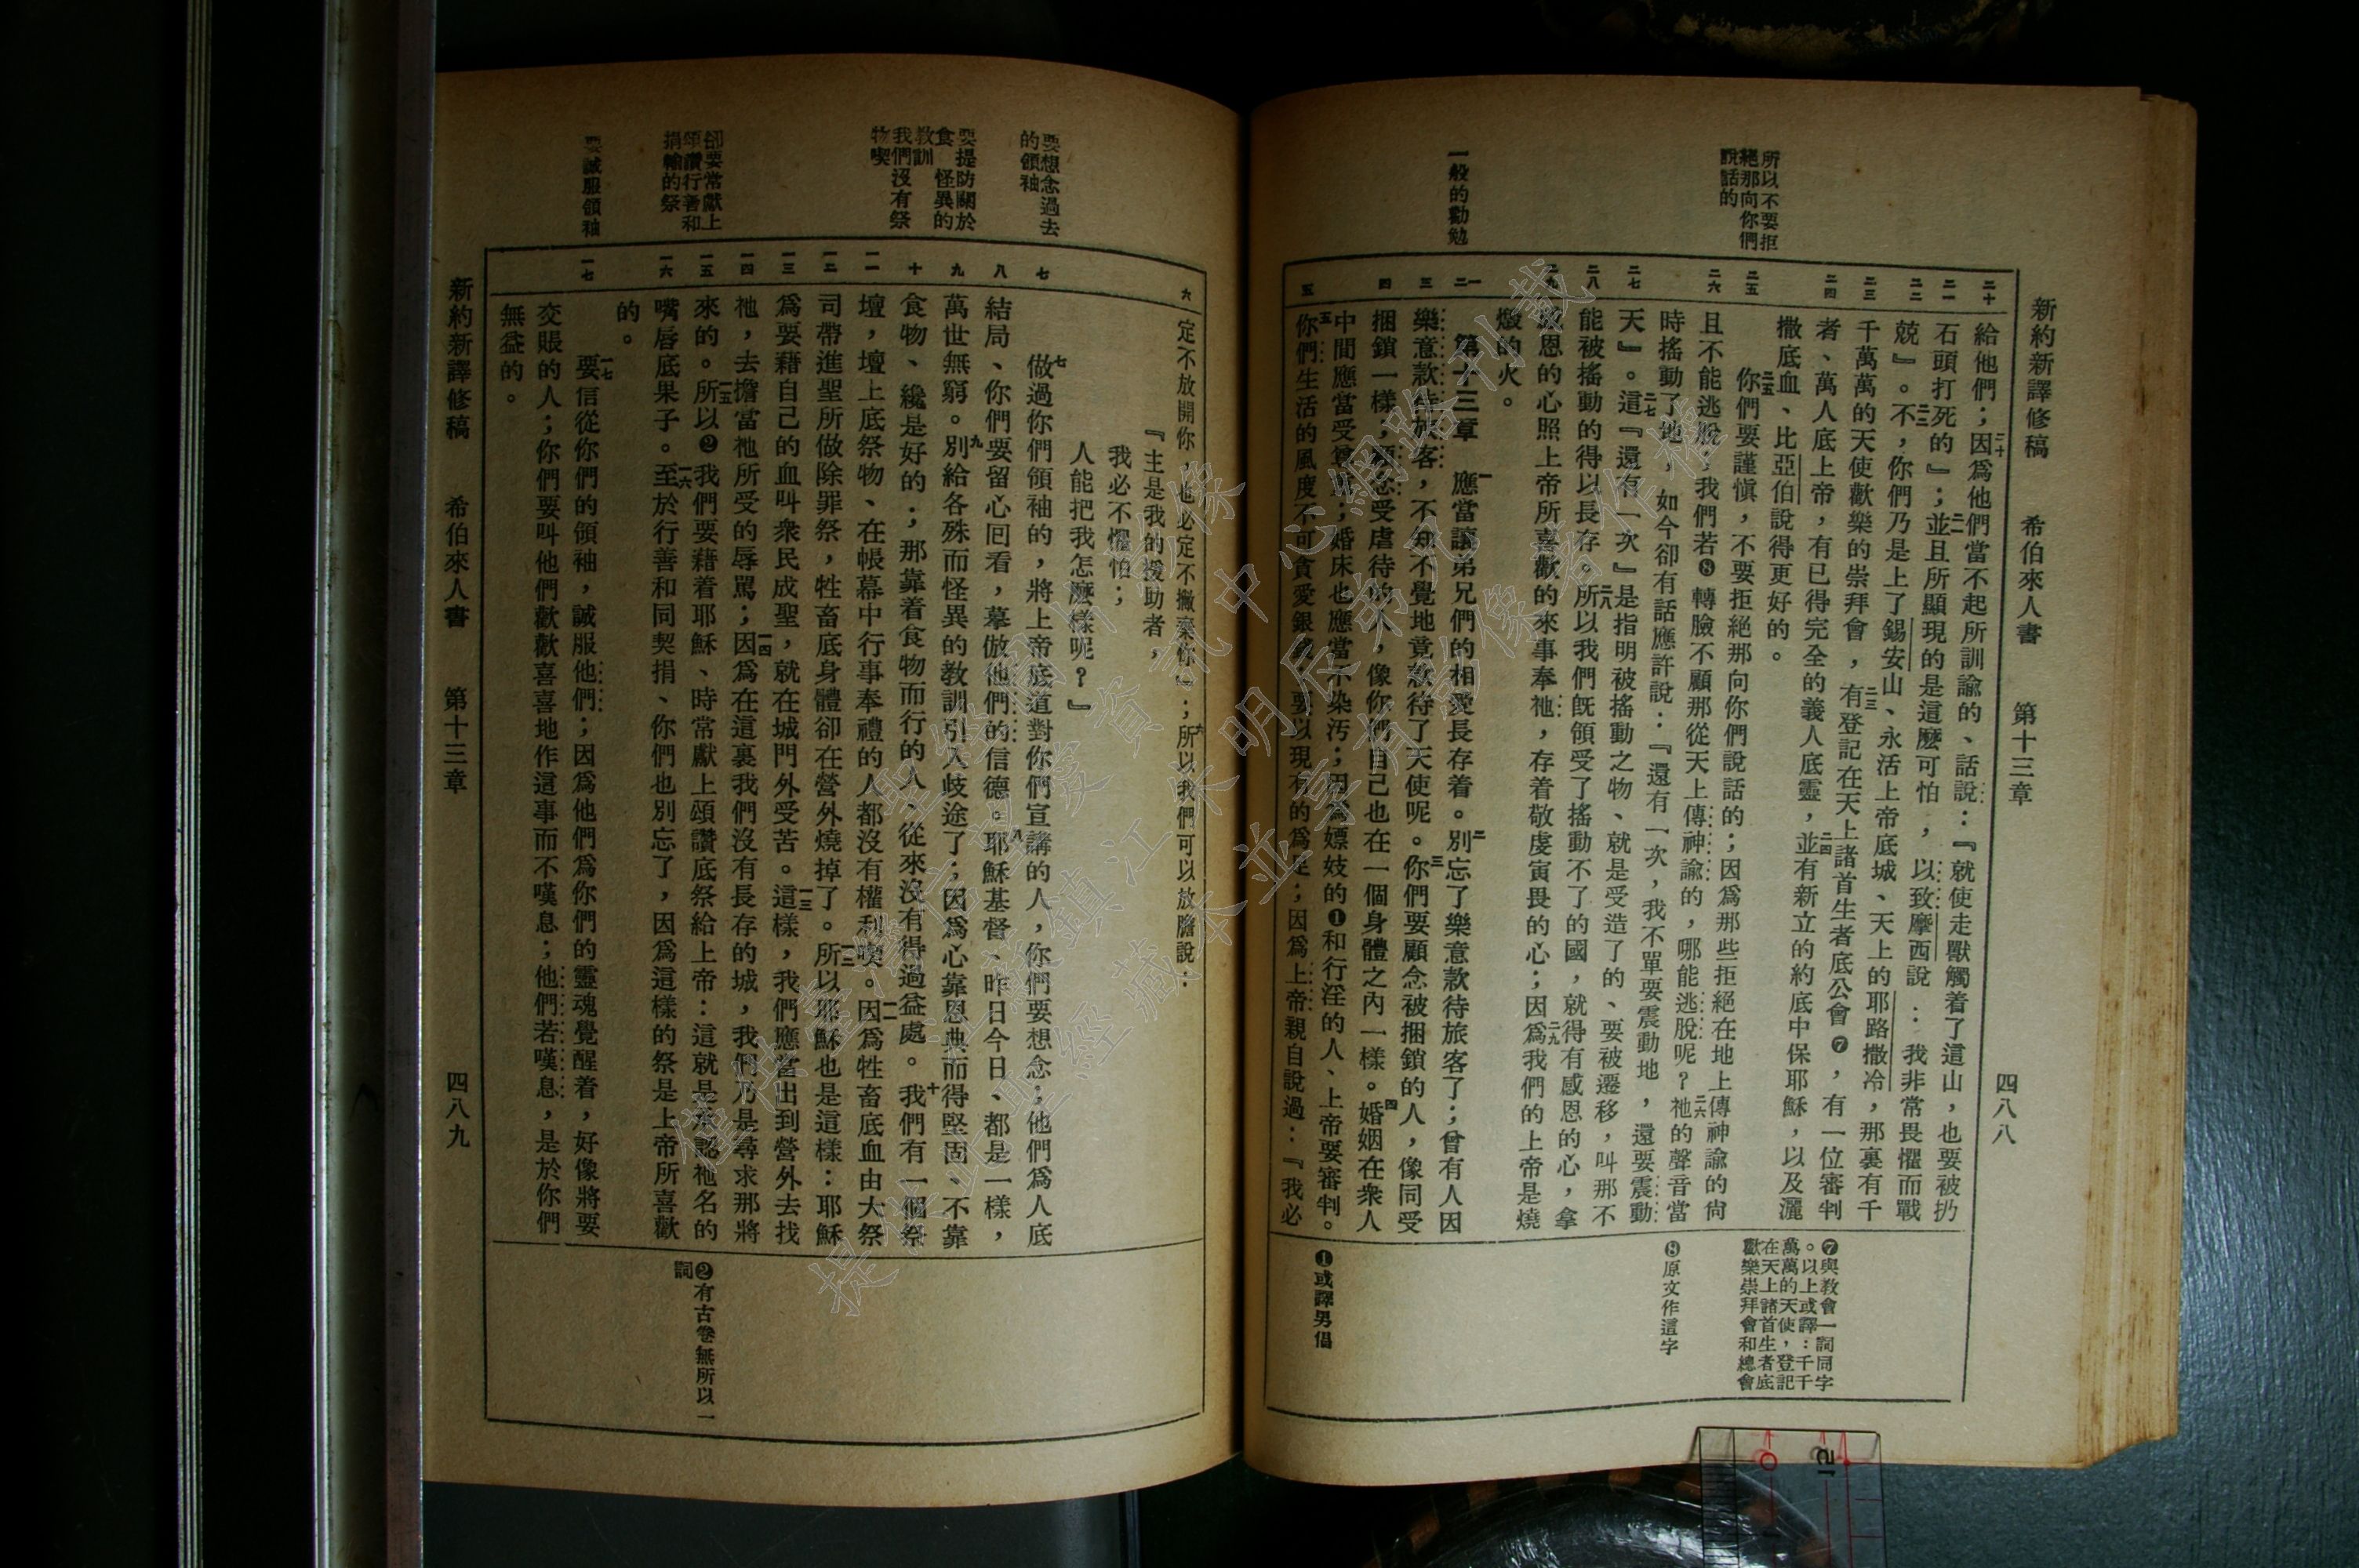 新約新譯修稿　希伯來人書　第十三章　四八八
所以不要拒
絕那向你們
說話的
一般的勸勉
二十　給他們；因爲他們當不起所訓諭的、話說：『就使走獸觸着了這山，也要被扔
二一　石頭打死的』；並且所顯現的是這麽可怕，以致摩西說：我非常畏懼而戰
二二　兢』。不，你們乃是上了錫安山、永活上帝底城、天上的耶路撒冷，那裏有千
二三　千萬萬的天使歡樂的崇拜會，有登記在天上諸首生者底公會❼，有一位審判
二四　者、萬人底上帝，有已得完全的義人底靈，並有新立的約底中保耶穌，以及灑
撒底血、比亞伯說得更好的。
二五　你們要謹愼，不要拒絕那向你們說話的；因爲那些拒絕在地上傳神諭的尙
二六　且不能逃脫，我們若❽轉臉不顧那從天上傳神諭的，哪能逃脫呢？祂的聲音當
時搖動了地，如今卻有話應許說：『還有一次，我不單要震動地，還要震動
二七　天』。這『還有一次』是指明被搖動之物、就是受造了的、要被遷移，叫那不
二八　能被搖動的得以長存。所以我們旣領受了搖動不了的國，就得有感恩的心，拿
二九　感恩的心照上帝所喜歡的來事奉祂，存着敬虔寅畏的心；因爲我們的上帝是燒
燬的火。
一二　第十三章　應當讓弟兄們的相愛長存着。別忘了樂意款待旅客了；曾有人因
三　樂意款待旅客，不知不覺地竟款待了天使呢。你們要顧念被捆鎖的人，像同受
四　捆鎖一樣；顧念受虐待的人，像你們自己也在一個身體之內一樣。婚姻在衆人
中間應當受尊重；婚床也應當不染汚；因爲嫖妓的❶和行淫的人、上帝要審判。
五　你們生活的風度不可貪愛銀錢，要以現有的爲足；因爲上帝親自說過：『我必
❼與敎會一詞同字
。以上或譯：千千
萬萬的天使，登記
在天上諸首生者底
歡樂崇拜會和總會
❽原文作這字
❶或譯男倡
要想念過去
的領袖
要提防關於
食　怪異的
敎訓
我們沒有祭
物喫
卻要常獻上
頌讚行善和
捐輸的祭
要誠服領袖
六　定不放開你，也必定不撇棄你』；所以我們可以放膽說：
『主是我的援助者，
我必不懼怕；
人能把我怎麽樣呢？』
七　做過你們領袖的，將上帝底道對你們宣講的人，你們要想念；他們爲人底
八　結局、你們要留心囘看，摹倣他們的信德。耶穌基督、昨日今日、都是一樣，
九　萬世無窮。別給各殊而怪異的敎訓引入歧途了；因爲心靠恩典而得堅固、不靠
十　食物、纔是好的；那靠着食物而行的人、從來沒有得過益處。我們有一個祭
一一　壇，壇上底祭物、在帳幕中行事奉禮的人都沒有權利喫。因爲牲畜底血由大祭
一二　司帶進聖所做除罪祭，牲畜底身體卻在營外燒掉了。所以耶穌也是這樣：耶穌
一三　爲要藉自己的血叫衆民成聖，就在城門外受苦。這樣，我們應當出到營外去找
一四　祂，去擔當祂所受的辱罵；因爲在這裏我們沒有長存的城，我們乃是尋求那將
一五　來的。所以❷我們要藉着耶穌、時常獻上頌讚底祭給上帝：這就是承認祂名的
一六　嘴唇底果子。至於行善和同契捐、你們也別忘了，因爲這樣的祭是上帝所喜歡
的。
一七　要信從你們的領袖，誠服他們；因爲他們爲你們的靈魂覺醒着，好像將要
交賬的人；你們要叫他們歡歡喜喜地作這事而不嘆息；他們若嘆息，是於你們
無益的。
❷有古卷無所以一
詞
新約新譯修稿　希伯來人書　第十三章　四八九